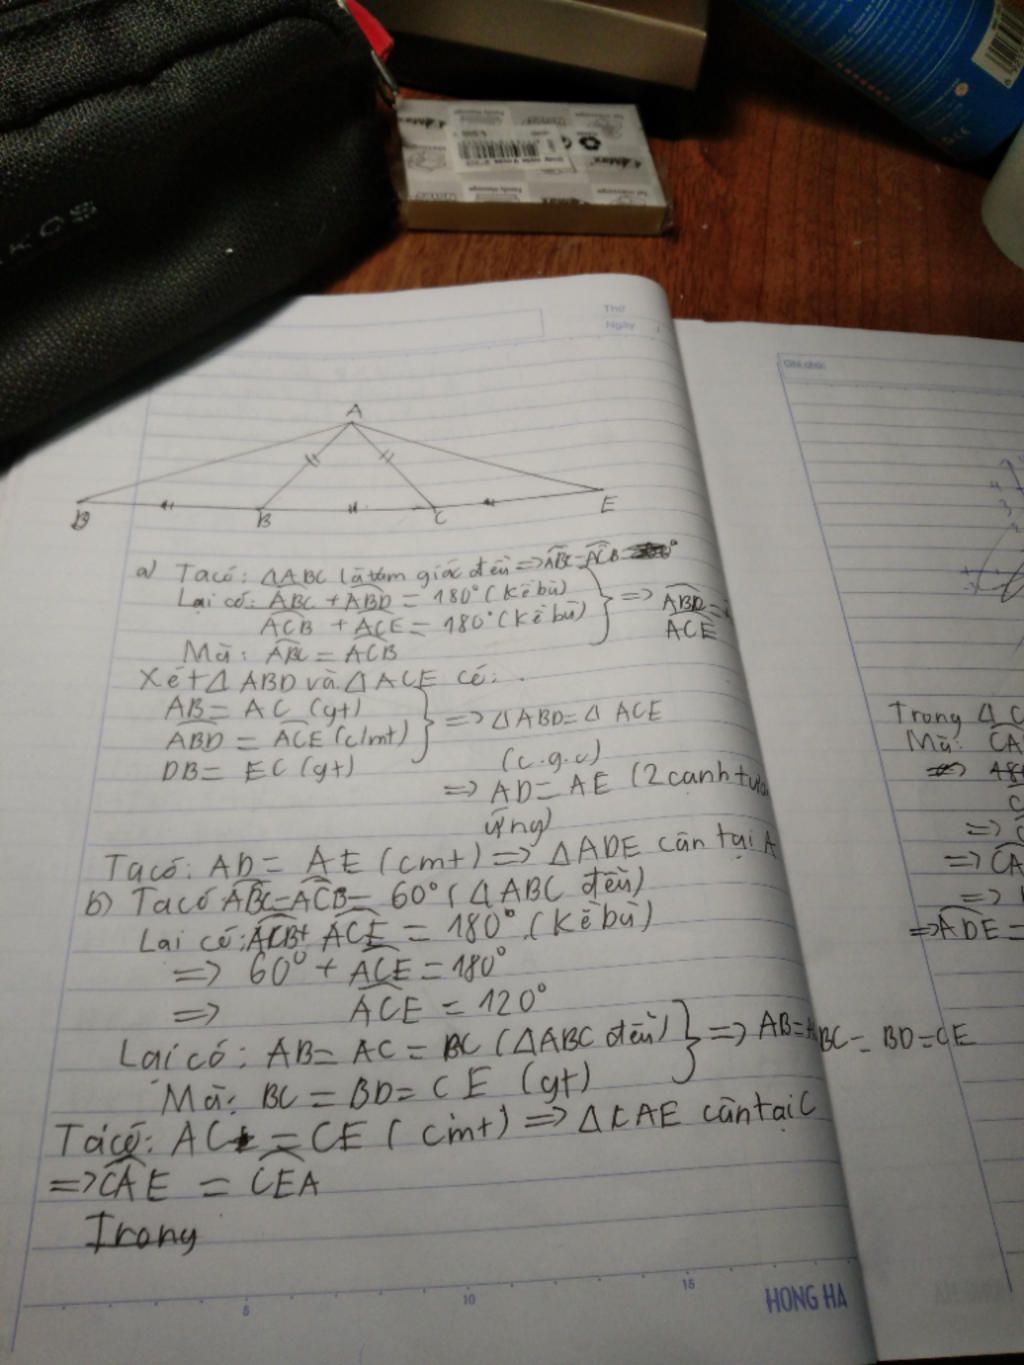 KOS
4.0Max
Thứ
Ngày
Ghi chú:
A
D B C E
a) Ta có: ΔABC là tam giác đều => ABC = ACB
Lại có: ABC + ABD = 180° (Kề bù)
ACB + ACE = 180° (Kề bù)
=> ABD =
ACE
Mà: ABC = ACB
Xét Δ ABD và Δ ACE có:
AB = AC (gt)
ABD = ACE (c/mt)
DB = EC (gt)
=> Δ ABD = Δ ACE
(c.g.c)
=> AD = AE (2 cạnh tươ
ứng)
Ta có: AD = AE (cmt) => ΔADE cân tại A
b) Ta có ABC = ACB = 60° (ΔABC đều)
Lại có: ACB + ACE = 180° (Kề bù)
=> 60° + ACE = 180°
=> ACE = 120°
Lại có: AB = AC = BC (ΔABC đều)
Mà: BC = BD = CE (gt)
=> AB = BC = BD = CE
Ta có: AC = CE (cmt) => ΔCAE cân tại C
=> CAE = CEA
Trong
5 10 15
HONG HA
Trong Δ C
Mà: CA
=>
=> CA
=>
=> ADE =